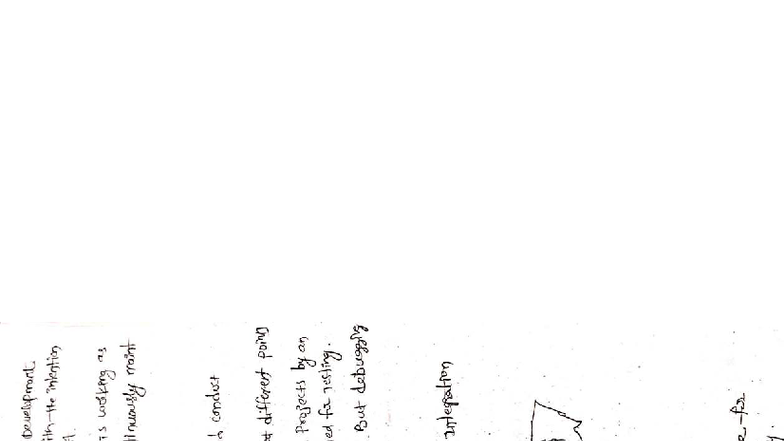 Development.
ith-the intention
t.
is working as
tinuously maint
conduct
at different point
Projects by an
ed for testing.
But debugging
integration
e-for
y.